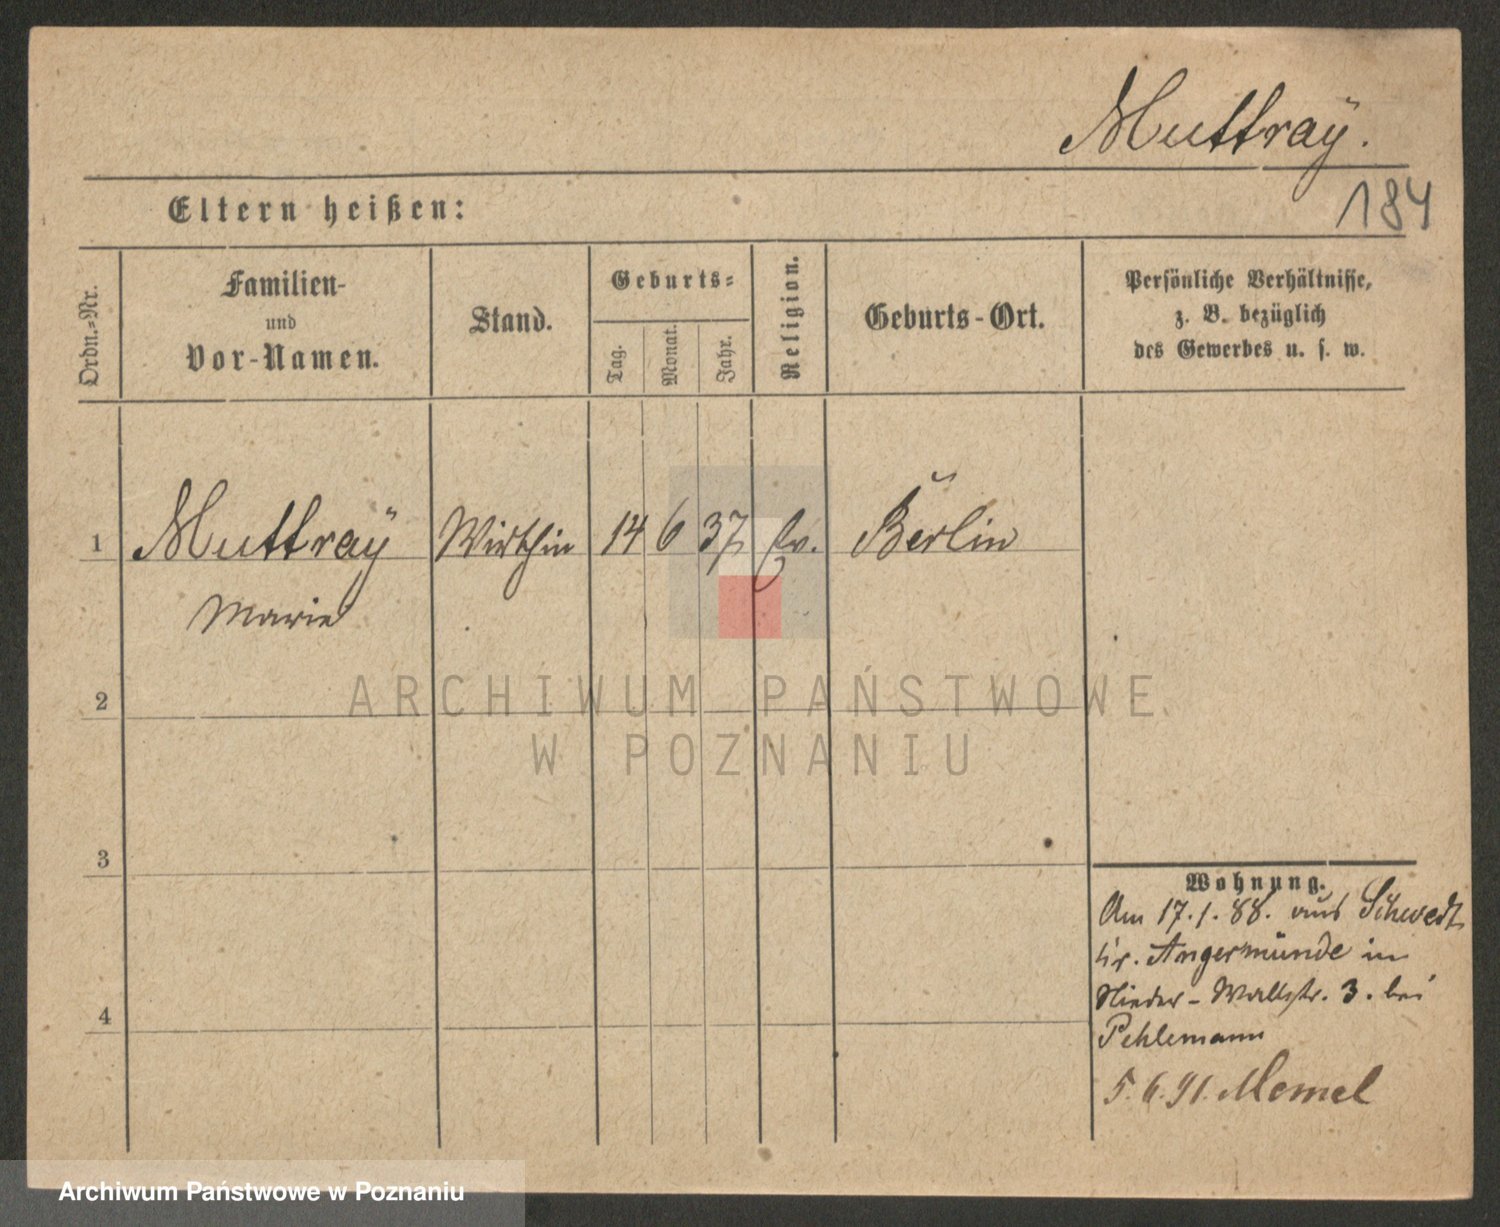 Muttraÿ.
184
Eltern heißen:
Ordn.-Nr.
Familien-
und
Vor-Namen.
Stand.
Geburts-
Tag.
Monat.
Jahr.
Religion.
Geburts-Ort.
Persönliche Verhältnisse,
z. B. bezüglich
des Gewerbes u. s. w.
1 Muttraÿ Wirthin 14 6 37 Ev. Berlin
Marie
2
3
4
Wohnung.
Am 17.1.88. aus Schwedt
Kr. Angermünde in
Nieder-Wallstr. 3. bei
Pehlemann
5.6.91. Memel
ARCHIWUM PAŃSTWOWE
W POZNANIU
Archiwum Państwowe w Poznaniu